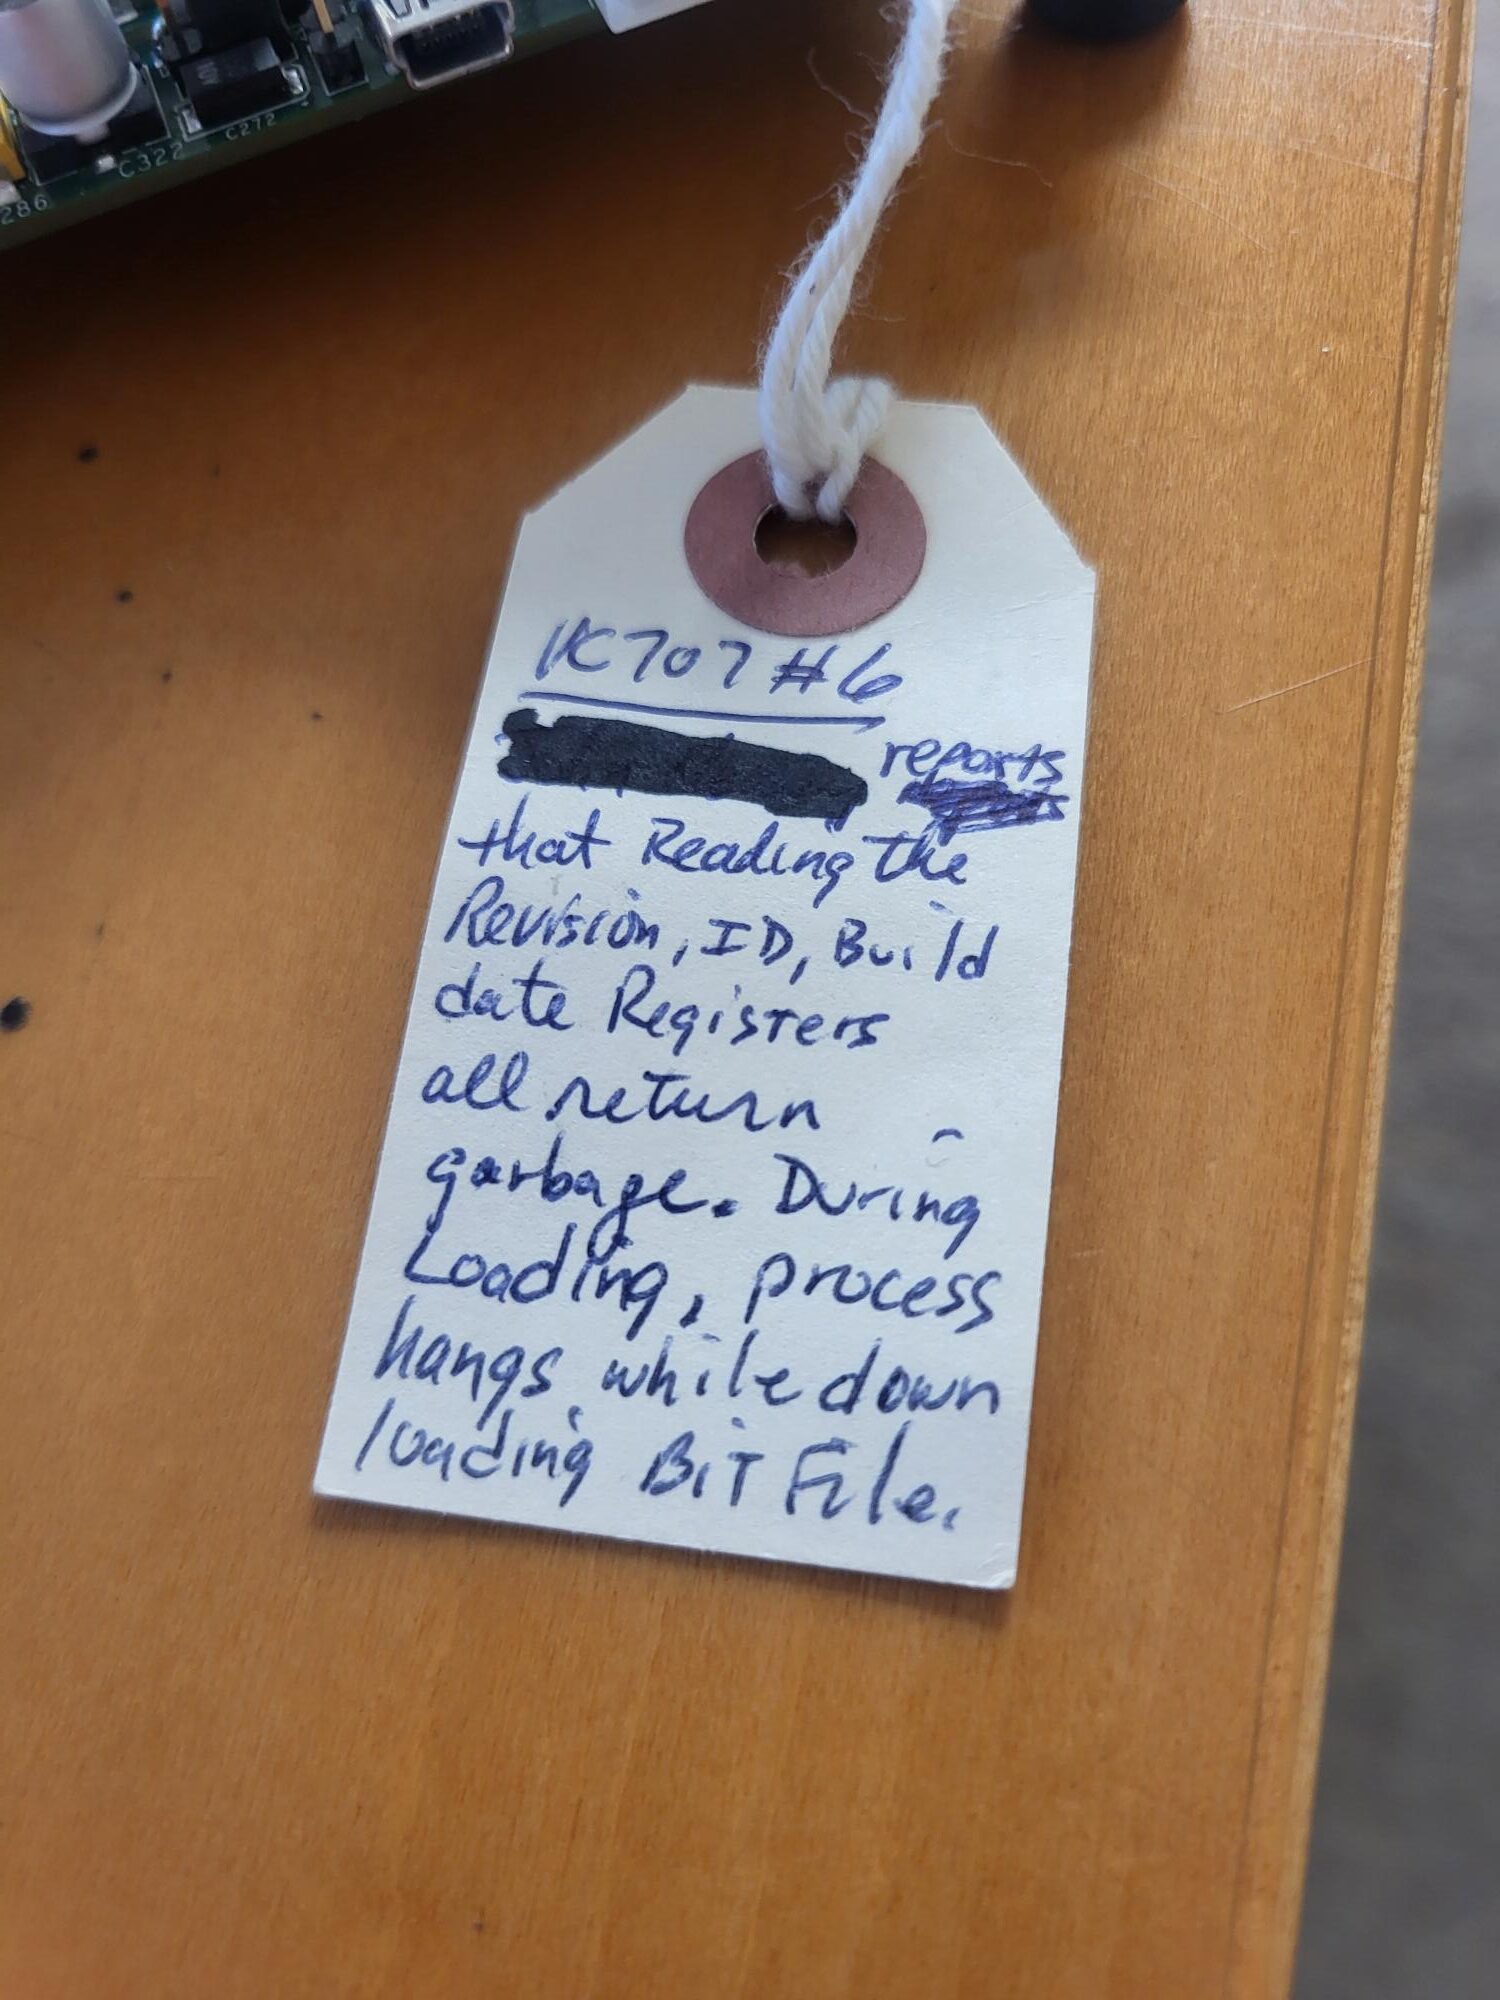 C272
C322
286
VC707 #6
reports
that Reading the
Revision, ID, Build
date Registers
all return
garbage. During
Loading, process
hangs while down
loading BiT File.